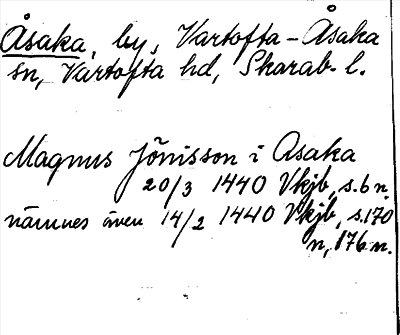 Åsaka, by, Vartofta-Åsaka
sn, Vartofta hd, Skarab. l.
Magnus Jönisson i Asaka
20/3 1440 Vkjb, s. 6 n.
nämnes även 14/2 1440 Vkjb, s. 170
n, 176 n.